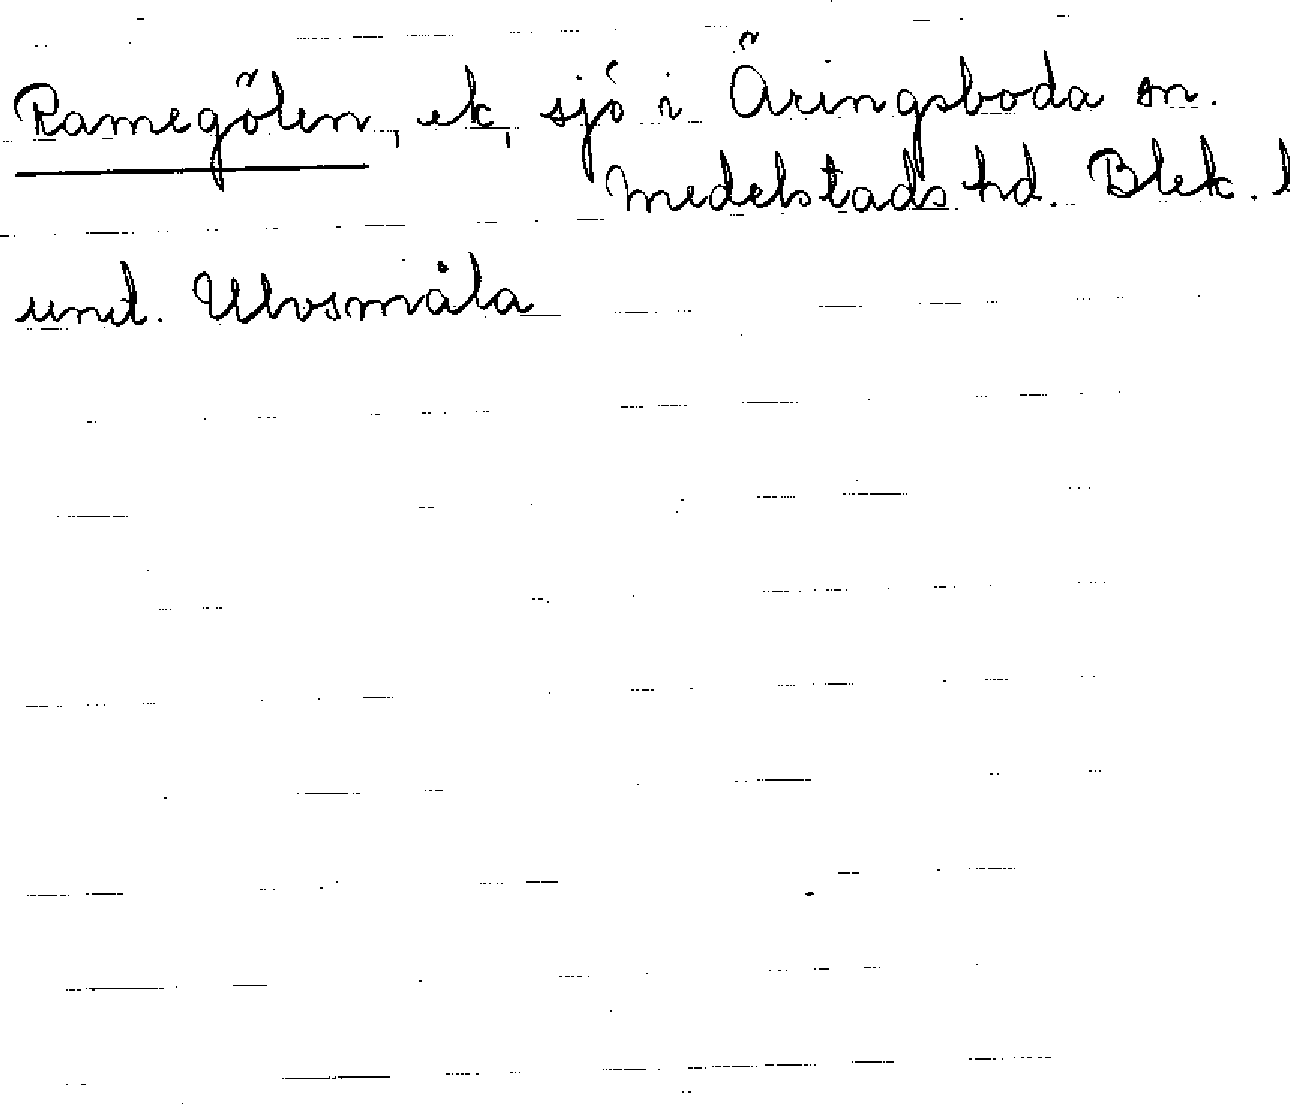 Ramegölen, ek, sjö i Öringsboda sn.
Medelstads hd. Blek. l
und. Ulvsmåla